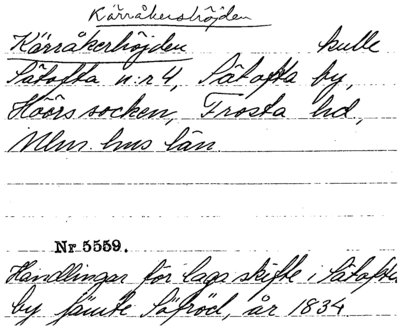 Kärråkershöjden
Kärråkerhöjden kulle
Sätofta n:r 4, Sätofta by,
Höörs socken, Frosta hd,
Mlm. hus län.
Nr 5559.
Handlingar för laga skifte i Sätofta
by jämte Sjöröd, år 1834